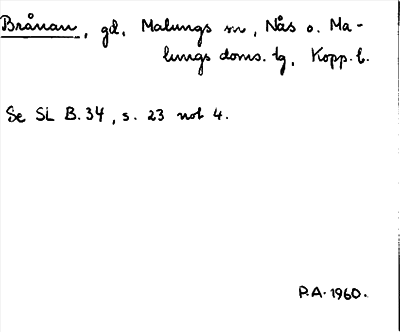 Brånan, gd, Malungs sn, Nås o. Ma-
lungs doms. tg, Kopp. l.
Se SL B. 34, s. 23 not 4.
P.A. 1960.